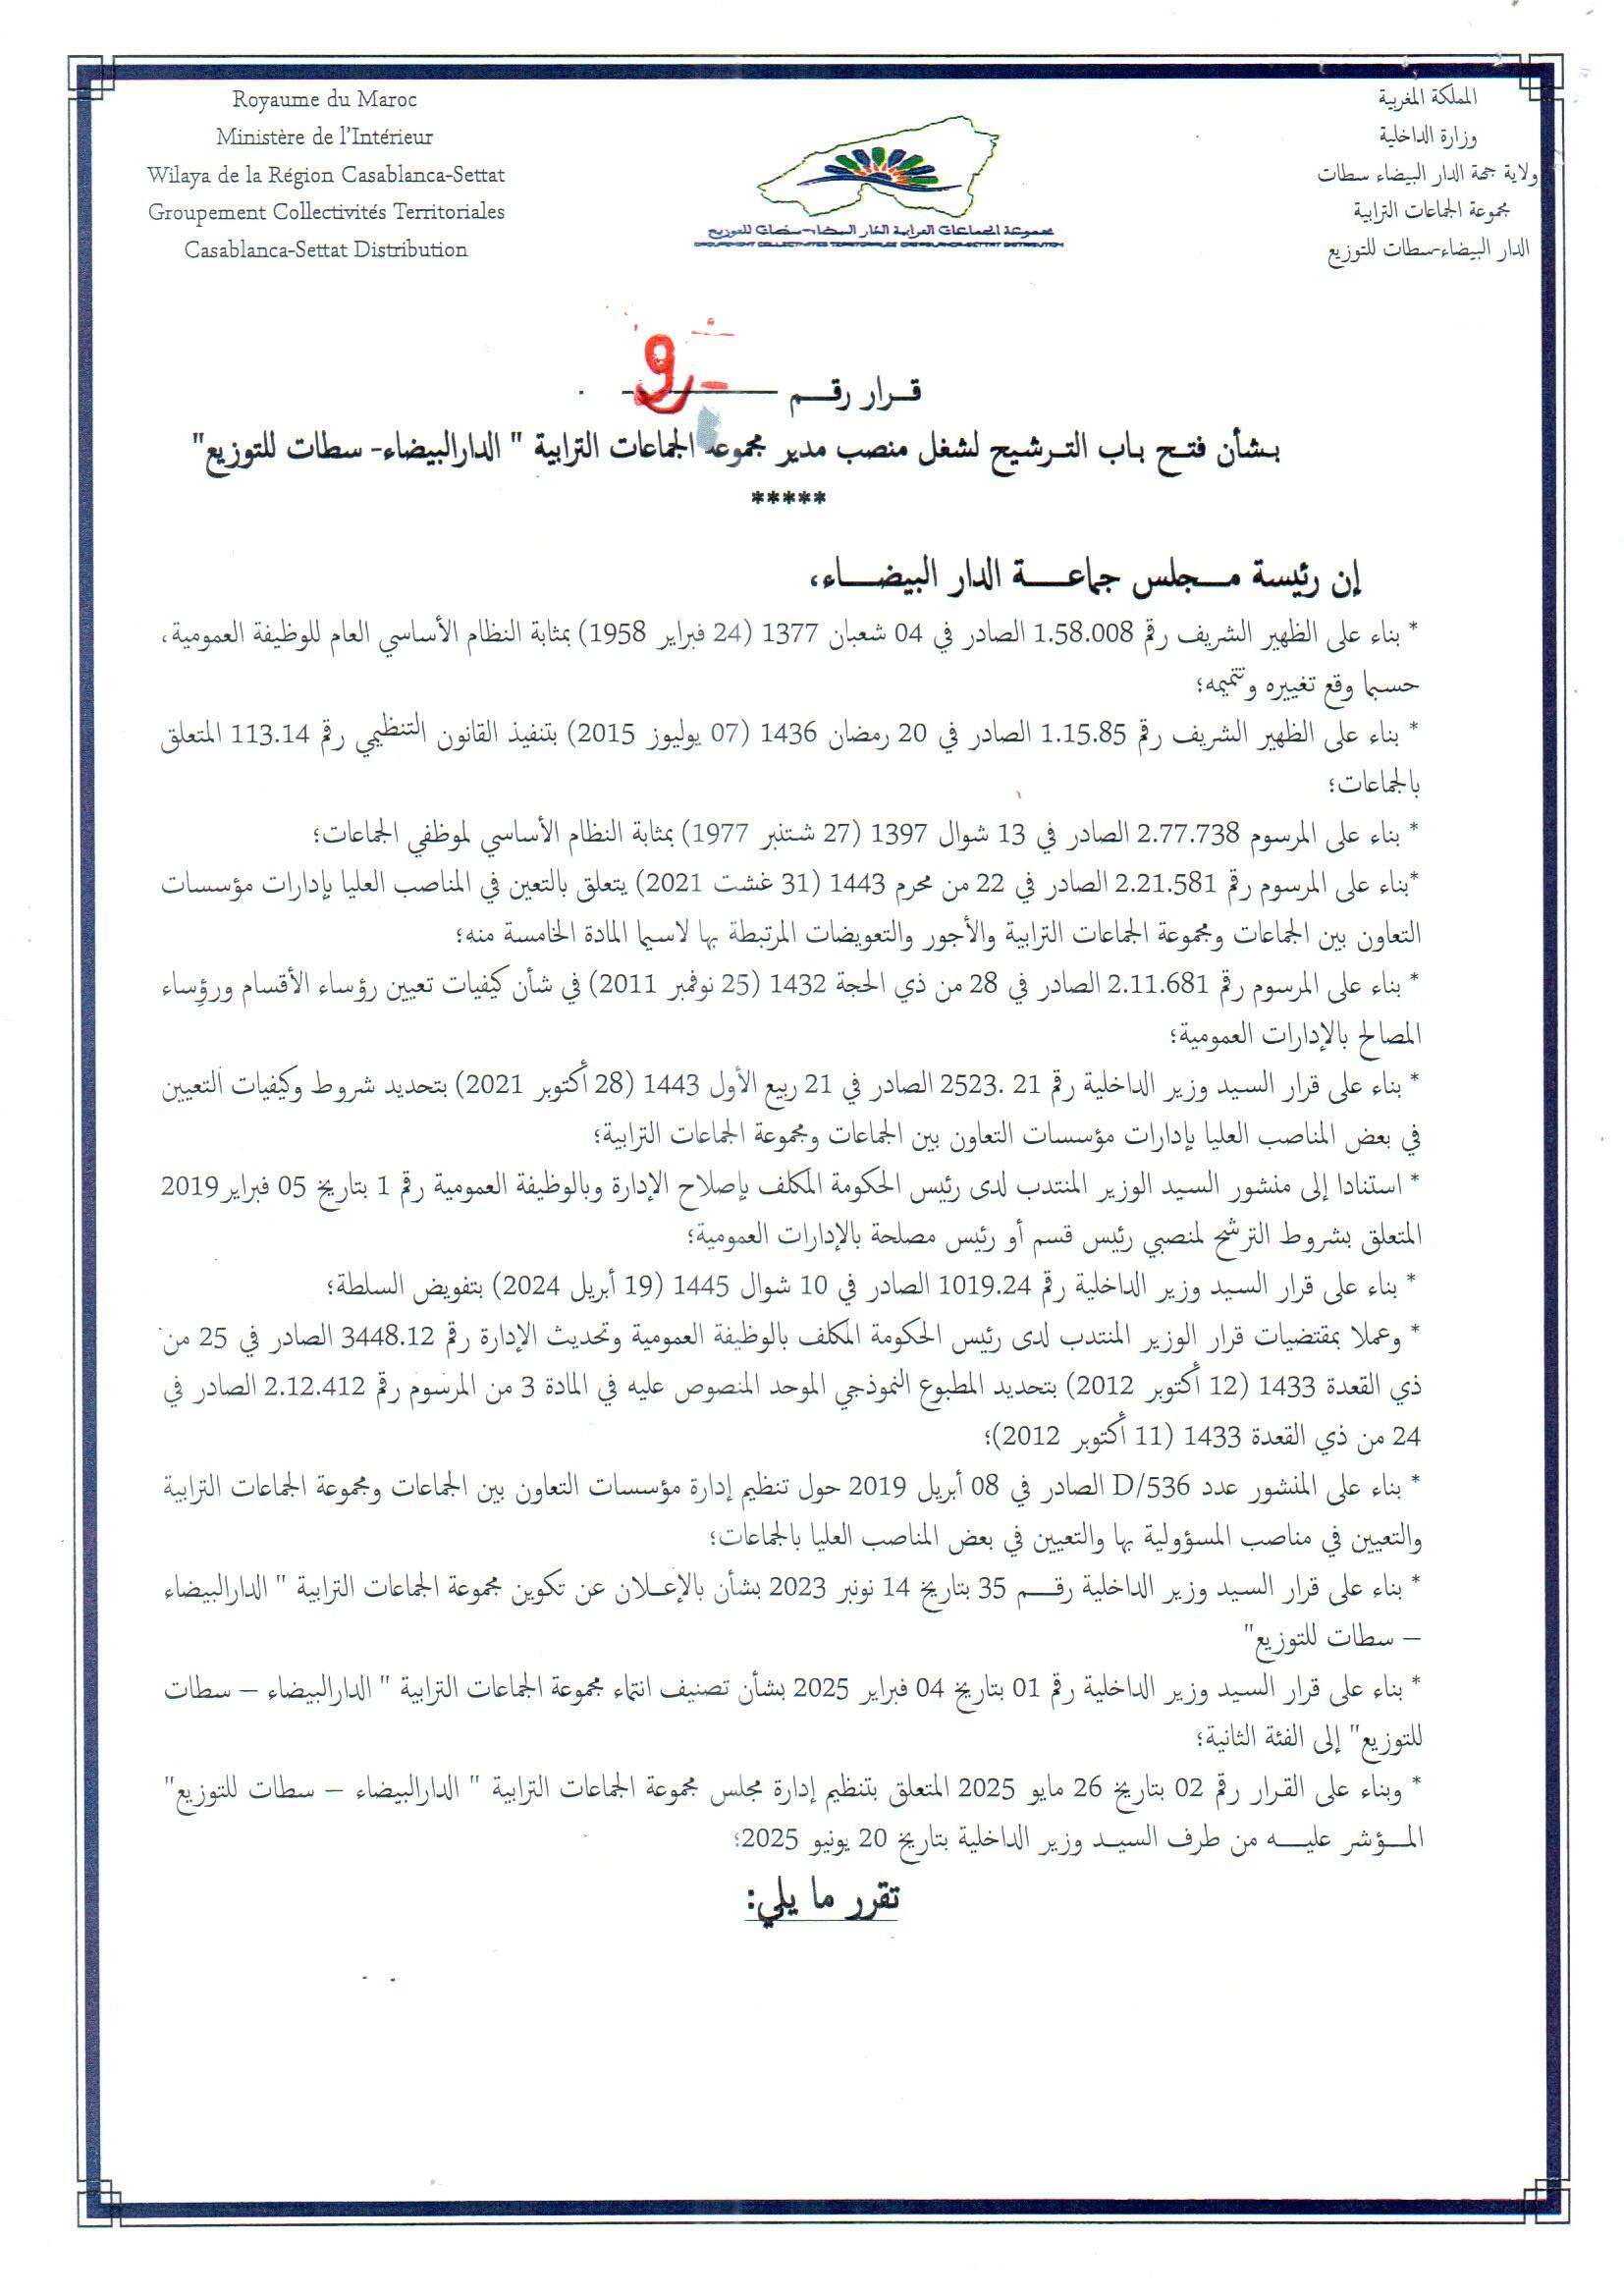 Royaume du Maroc
Ministère de l'Intérieur
Wilaya de la Région Casablanca-Settat
Groupement Collectivités Territoriales
Casablanca-Settat Distribution
المملكة المغربية
وزارة الداخلية
ولاية جهة الدار البيضاء سطات
مجموعة الجماعات الترابية
الدار البيضاء-سطات للتوزيع
مجموعة الجماعات الترابية الدار البيضاء-سطات للتوزيع
GROUPEMENT COLLECTIVITES TERRITORIALES CASABLANCA-SETTAT DISTRIBUTION
قـرار رقـم 9
بـشأن فتـح بـاب التـرشيح لشغل منصب مدير مجموعة الجماعات الترابية " الدارالبيضاء- سطات للتوزيع"
*****
إن رئيسة مـجلس جماعـة الدار البيضـاء،
* بناء على الظهير الشريف رقم 1.58.008 الصادر في 04 شعبان 1377 (24 فبراير 1958) بمثابة النظام الأساسي العام للوظيفة العمومية،
حسبما وقع تغييره وتتميمه؛
* بناء على الظهير الشريف رقم 1.15.85 الصادر في 20 رمضان 1436 (07 يوليوز 2015) بتنفيذ القانون التنظيمي رقم 113.14 المتعلق
بالجماعات؛
* بناء على المرسوم 2.77.738 الصادر في 13 شوال 1397 (27 شتنبر 1977) بمثابة النظام الأساسي لموظفي الجماعات؛
*بناء على المرسوم رقم 2.21.581 الصادر في 22 من محرم 1443 (31 غشت 2021) يتعلق بالتعين في المناصب العليا بإدارات مؤسسات
التعاون بين الجماعات ومجموعة الجماعات الترابية والأجور والتعويضات المرتبطة بها لاسيما المادة الخامسة منه؛
* بناء على المرسوم رقم 2.11.681 الصادر في 28 من ذي الحجة 1432 (25 نوفمبر 2011) في شأن كيفيات تعيين رؤساء الأقسام ورؤساء
المصالح بالإدارات العمومية؛
* بناء على قرار السيد وزير الداخلية رقم 21 .2523 الصادر في 21 ربيع الأول 1443 (28 أكتوبر 2021) بتحديد شروط وكيفيات التعيين
في بعض المناصب العليا بإدارات مؤسسات التعاون بين الجماعات ومجموعة الجماعات الترابية؛
* استنادا إلى منشور السيد الوزير المنتدب لدى رئيس الحكومة المكلف بإصلاح الإدارة وبالوظيفة العمومية رقم 1 بتاريخ 05 فبراير 2019
المتعلق بشروط الترشح لمنصبي رئيس قسم أو رئيس مصلحة بالإدارات العمومية؛
* بناء على قرار السيد وزير الداخلية رقم 1019.24 الصادر في 10 شوال 1445 (19 أبريل 2024) بتفويض السلطة؛
* وعملا بمقتضيات قرار الوزير المنتدب لدى رئيس الحكومة المكلف بالوظيفة العمومية وتحديث الإدارة رقم 3448.12 الصادر في 25 من
ذي القعدة 1433 (12 أكتوبر 2012) بتحديد المطبوع النموذجي الموحد المنصوص عليه في المادة 3 من المرسوم رقم 2.12.412 الصادر في
24 من ذي القعدة 1433 (11 أكتوبر 2012)؛
* بناء على المنشور عدد D/536 الصادر في 08 أبريل 2019 حول تنظيم إدارة مؤسسات التعاون بين الجماعات ومجموعة الجماعات الترابية
والتعيين في مناصب المسؤولية بها والتعيين في بعض المناصب العليا بالجماعات؛
* بناء على قرار السيد وزير الداخلية رقـم 35 بتاريخ 14 نونبر 2023 بشأن بالإعـلان عن تكوين مجموعة الجماعات الترابية " الدارالبيضاء
– سطات للتوزيع"
* بناء على قرار السيد وزير الداخلية رقم 01 بتاريخ 04 فبراير 2025 بشأن تصنيف انتماء مجموعة الجماعات الترابية " الدارالبيضاء – سطات
للتوزيع" إلى الفئة الثانية؛
* وبناء على القرار رقم 02 بتاريخ 26 مايو 2025 المتعلق بتنظيم إدارة مجلس مجموعة الجماعات الترابية " الدارالبيضاء – سطات للتوزيع"
المـؤشر عليـه من طرف السيـد وزير الداخلية بتاريخ 20 يونيو 2025؛
تقرر ما يلي: